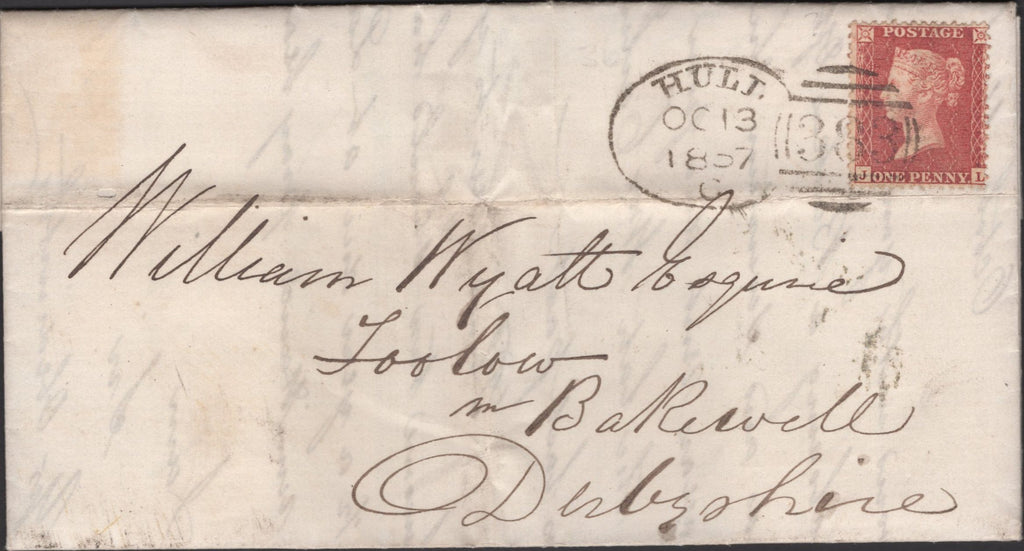 POSTAGE
HULL
OC 13
1857
C
383
J ONE PENNY L
William Wyatt Esquire
Foolow
nr Bakewell
Derbyshire